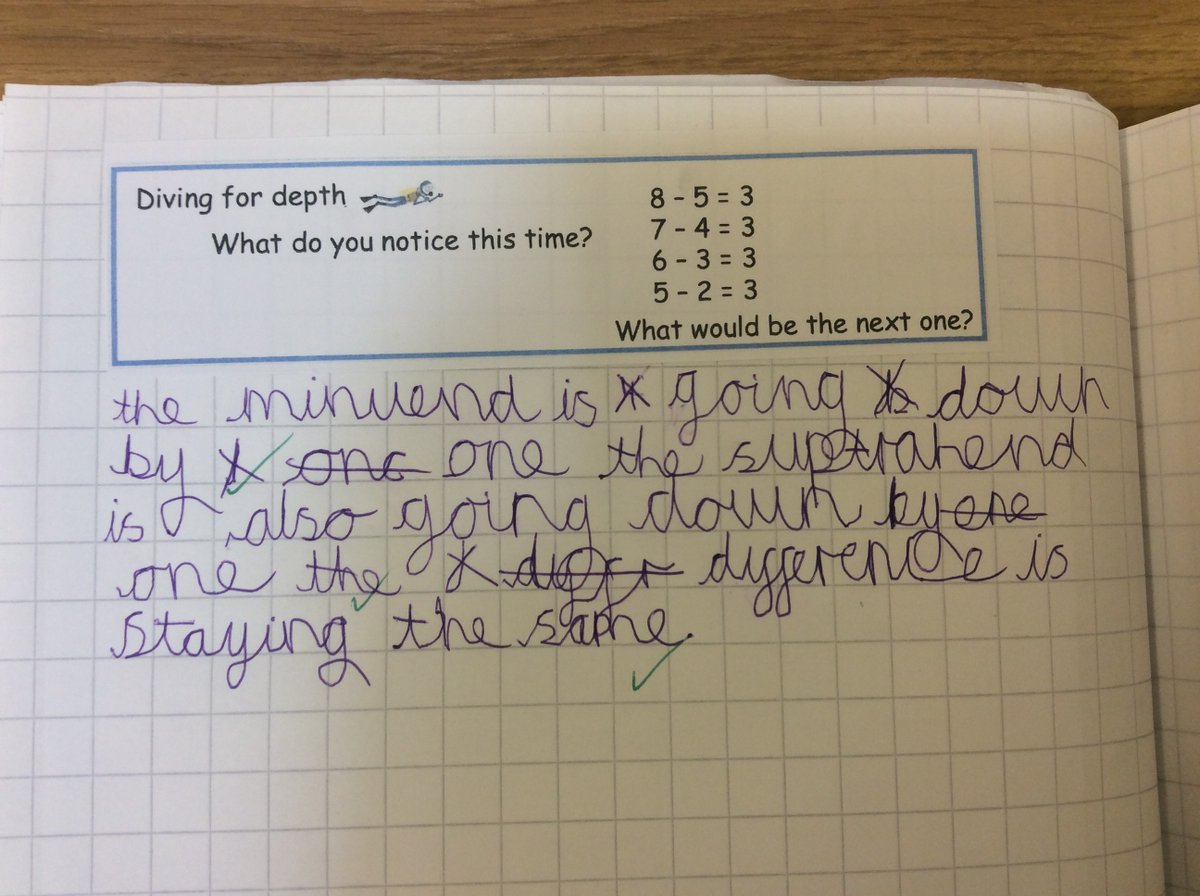 Diving for depth
What do you notice this time?
8 - 5 = 3
7 - 4 = 3
6 - 3 = 3
5 - 2 = 3
What would be the next one?
the minuend is going down
by one one the suptrahend
is also going down by one
one the difference is
staying the same.